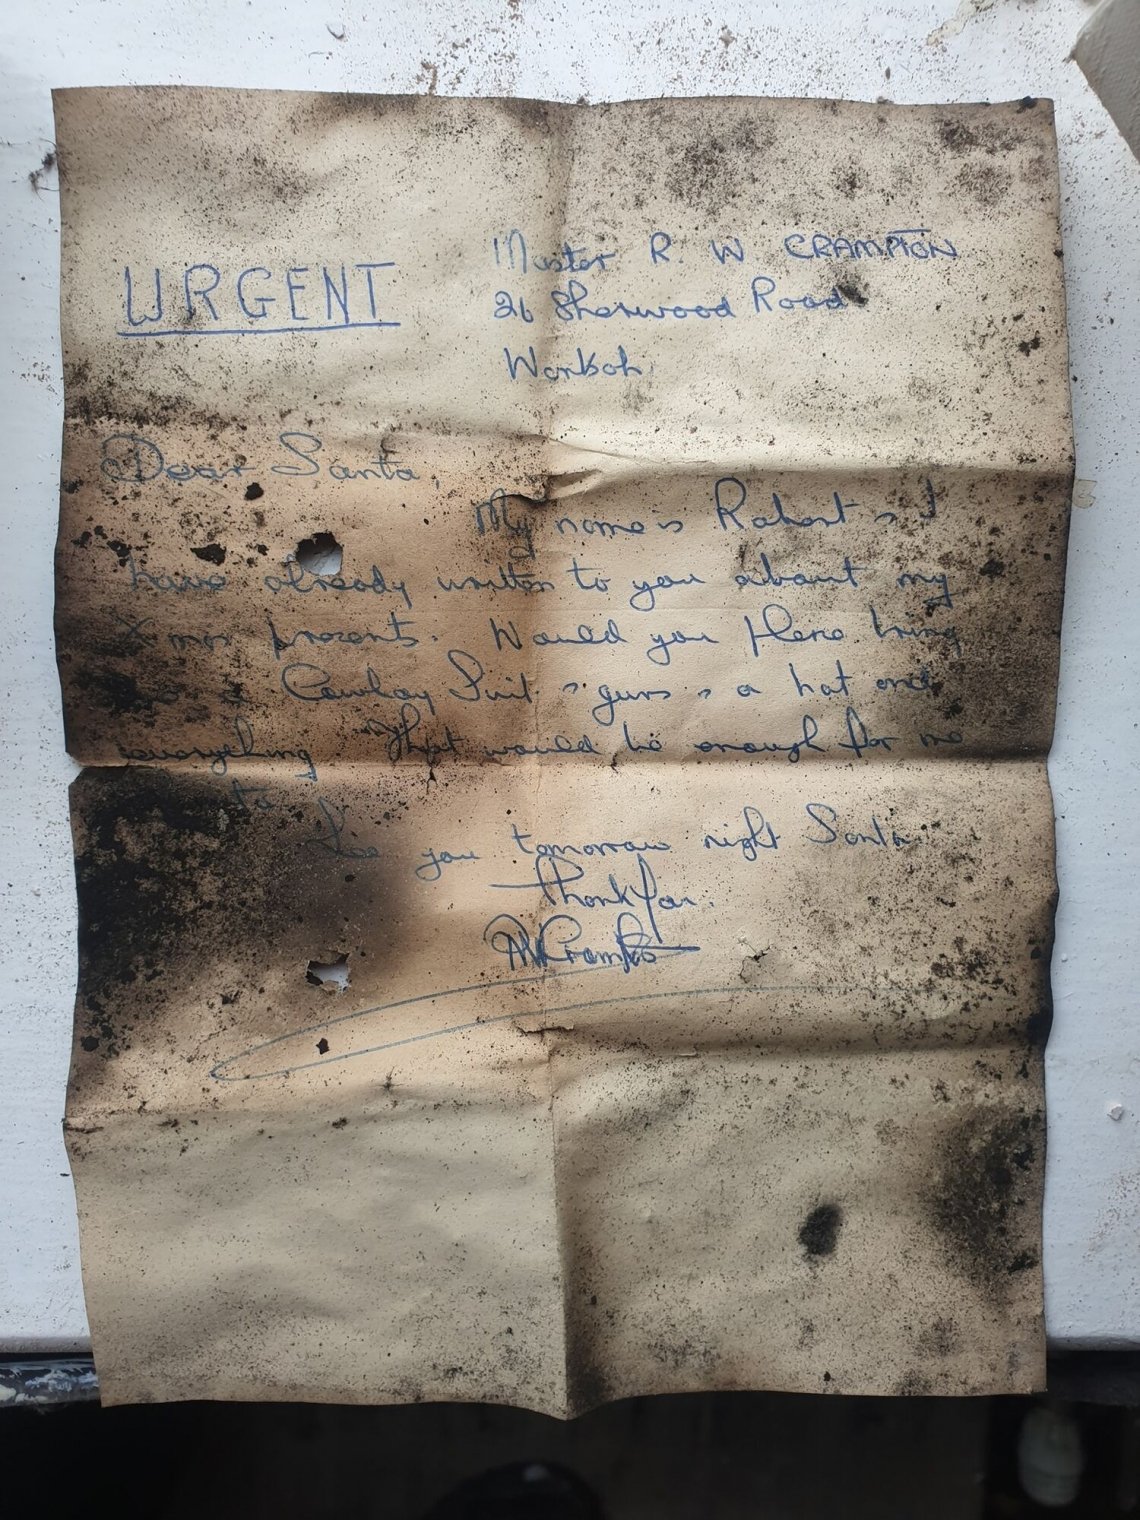 URGENT
Master R. W CRAMPTON
26 Sherwood Road
Worksop
Dear Santa,
My name is Robert & I
have already written to you about my
Xmas presents. Would you please bring
me a Cowboy Suit & guns & a hat and
everything That would be enough for me
See you tomorrow night Santa
Thank you.
RWCrampton